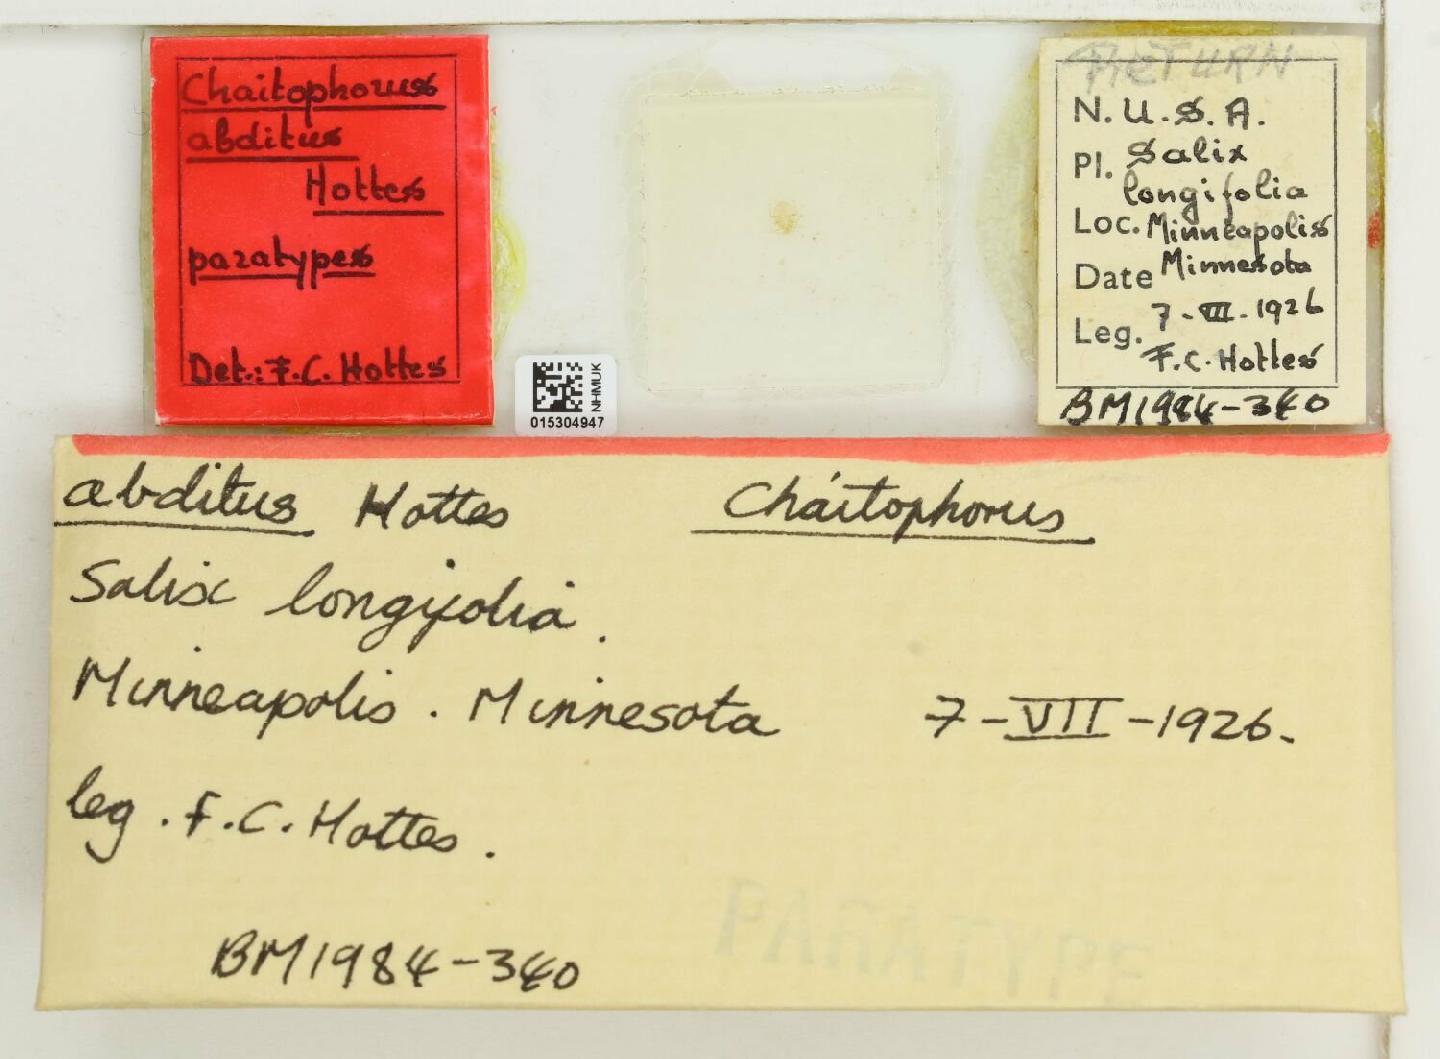 Chaitophorus
abditus
Hottes
paratypes
Det.: F.C. Hottes
NHMUK
015304947
RETURN
N. U.S.A.
Pl. Salix
longifolia
Loc. Minneapolis
Date Minnesota
7-VII-1926
Leg. F.C. Hottes
BM1984-340
abditus Hottes Chaitophorus
Salix longifolia.
Minneapolis. Minnesota 7-VII-1926.
leg. F.C. Hottes.
BM1984-340
PARATYPE